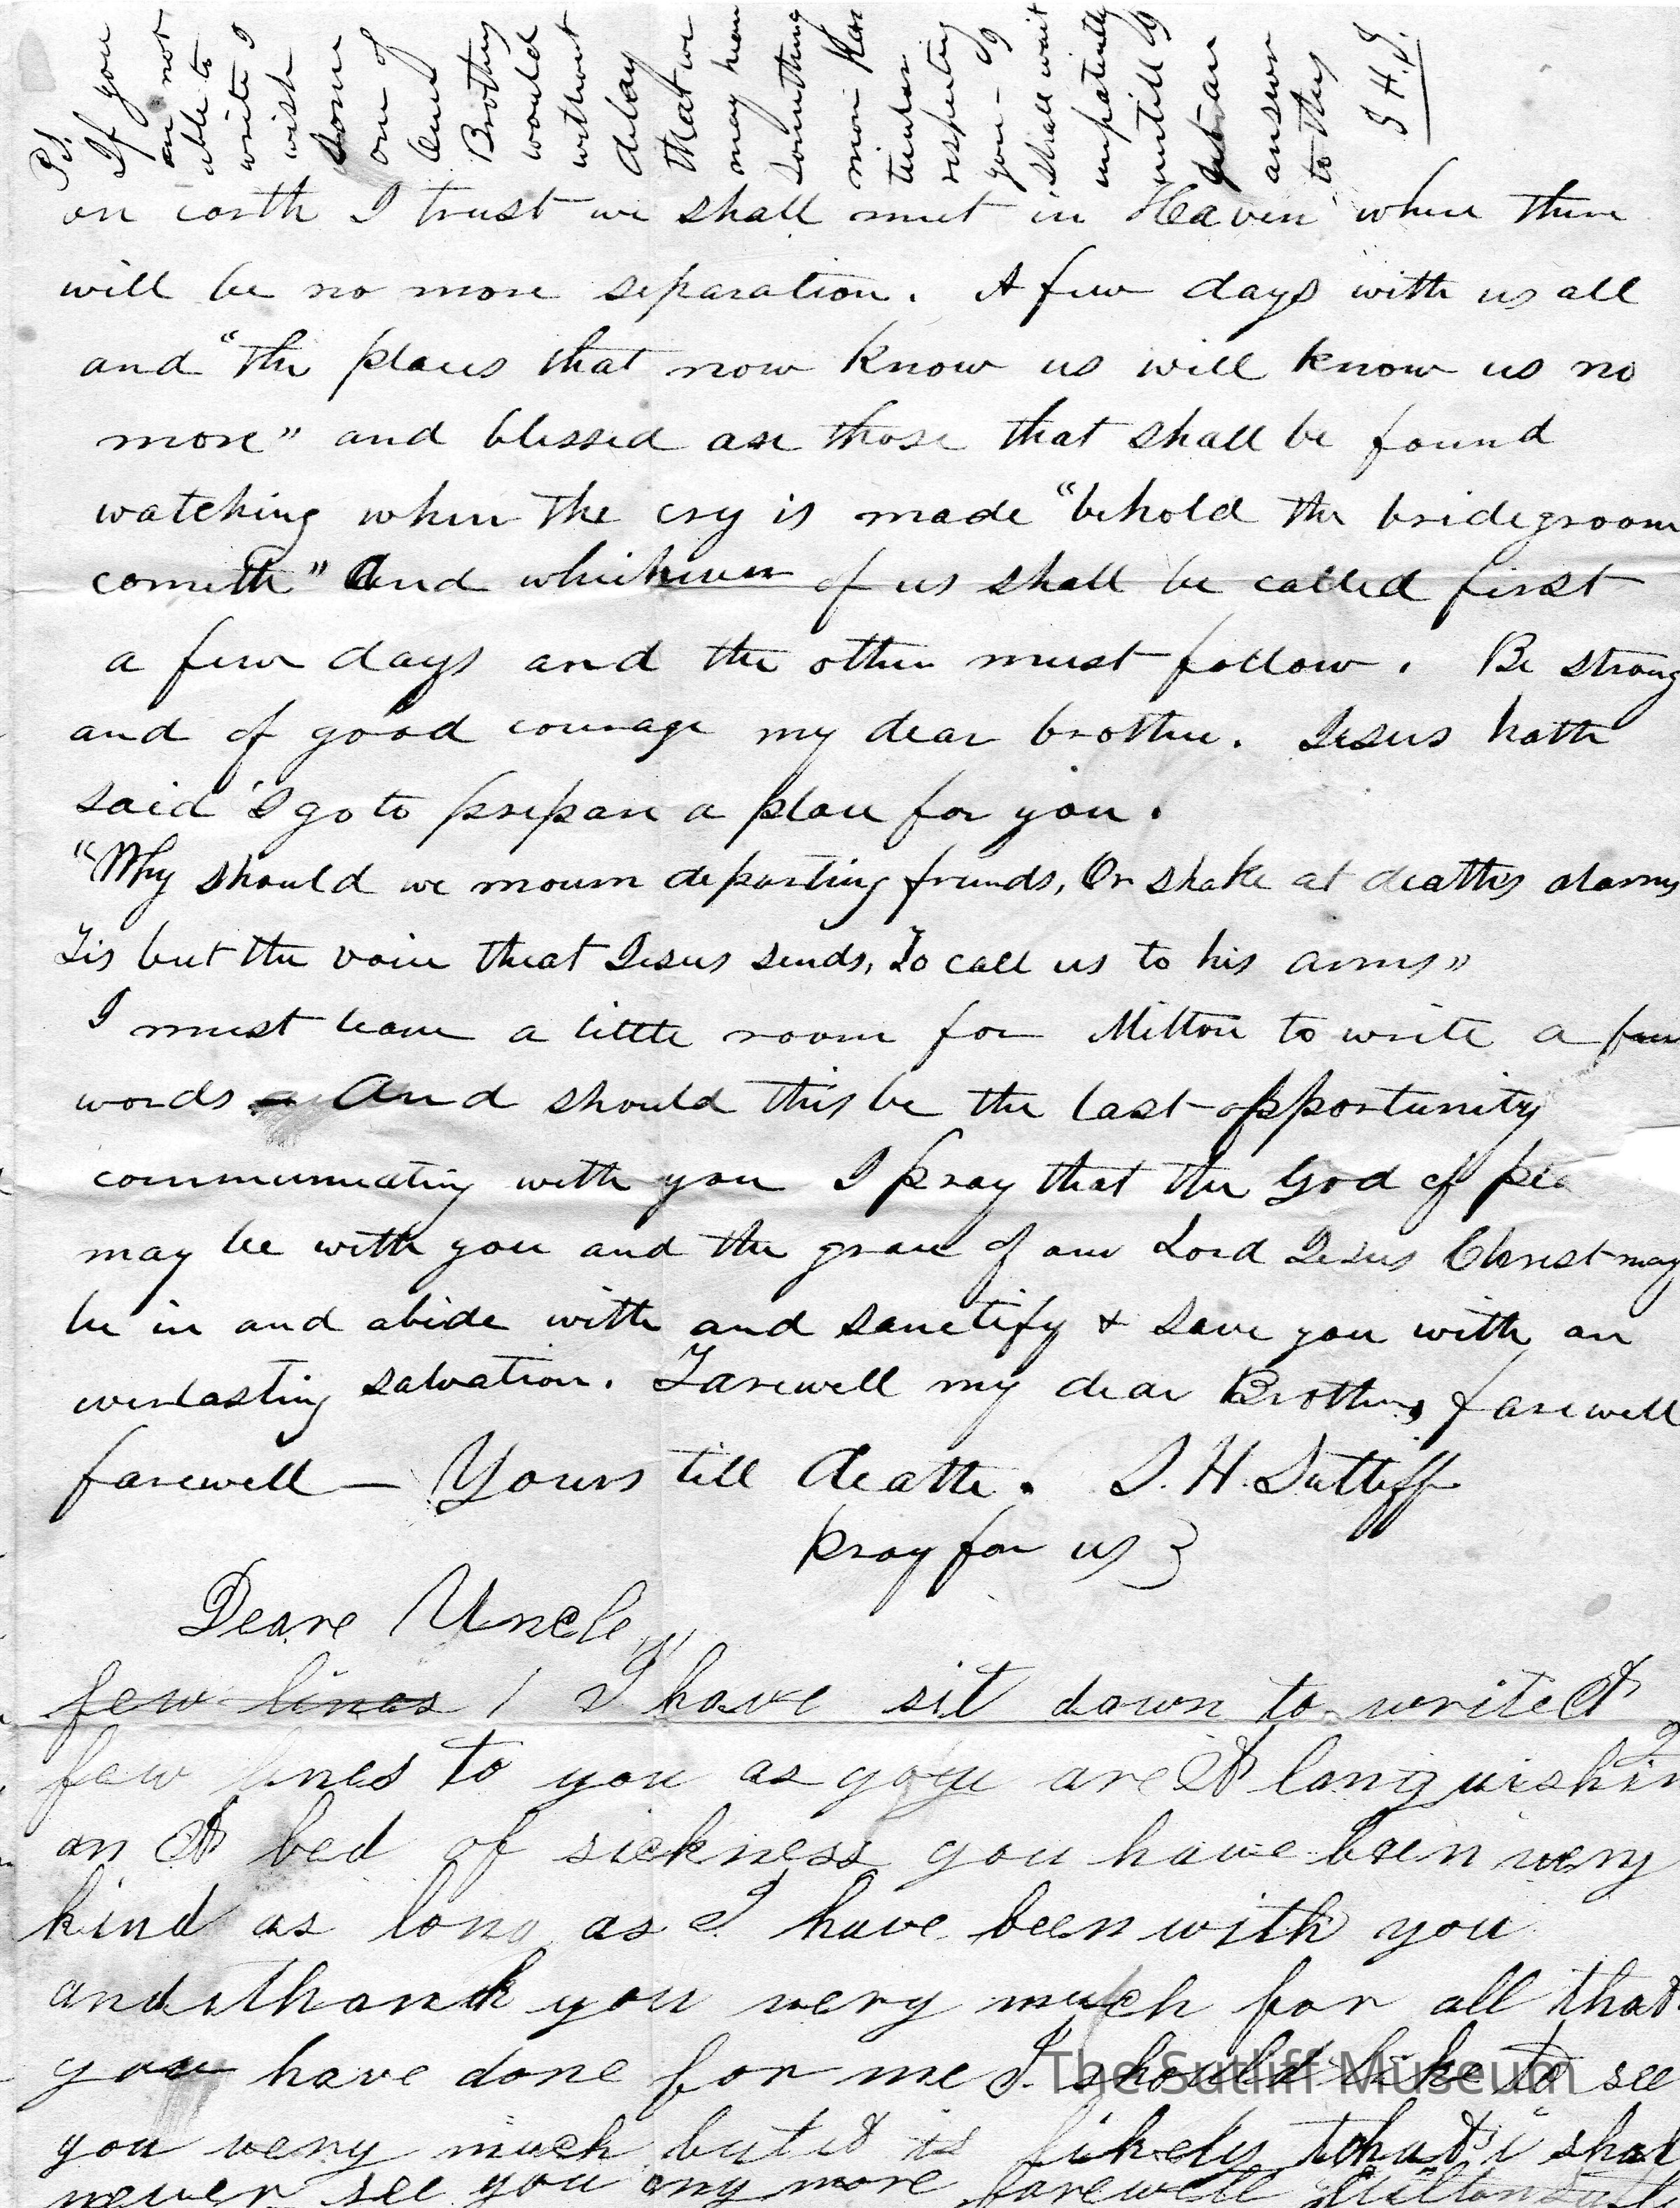 P.S.
If you
are not
able to
write I
wish
some
one of
our
Brothers
would
without
delay
that we
may hear
something
more par
ticular
respecting
you - I
shall wait
impatiently
untill I
get an
answer
to this
S. H. S.
on earth I trust we shall meet in Heaven where there
will be no more separation. A few days with us all
and "the places that now know us will know us no
more" and blessed are those that shall be found
watching when the cry is made "behold the bridegroom
cometh" And whichever of us shall be called first
a few days and the other must follow. Be strong
and of good courage my dear brother. Jesus hath
said 'I go to prepare a place for you.
"Why should we mourn departing friends, Or shake at deaths alarms
Tis but the voice that Jesus sends, To call us to his arms"
I must leave a little room for Milton to write a few
words - And should this be the last opportunity
communicating with you I pray that the God of pea
may be with you and the grace of our Lord Jesus Christ may
be in and abide with and sanctify & save you with an
everlasting salvation. Farewell my dear Brother, farewell
farewell — Yours till death. S. H. Sutliff
Pray for us
Deare Uncle
few lines I have sit down to write A
few lines to you as you are A languishing
on A bed of sickness you have been very
kind as long as I have been with you
and i thank you very much for all that
you have done for me I should like to see
you very much but it is likely that i shal
never see you any more farewell Milton Sutl
The Sutliff Museum